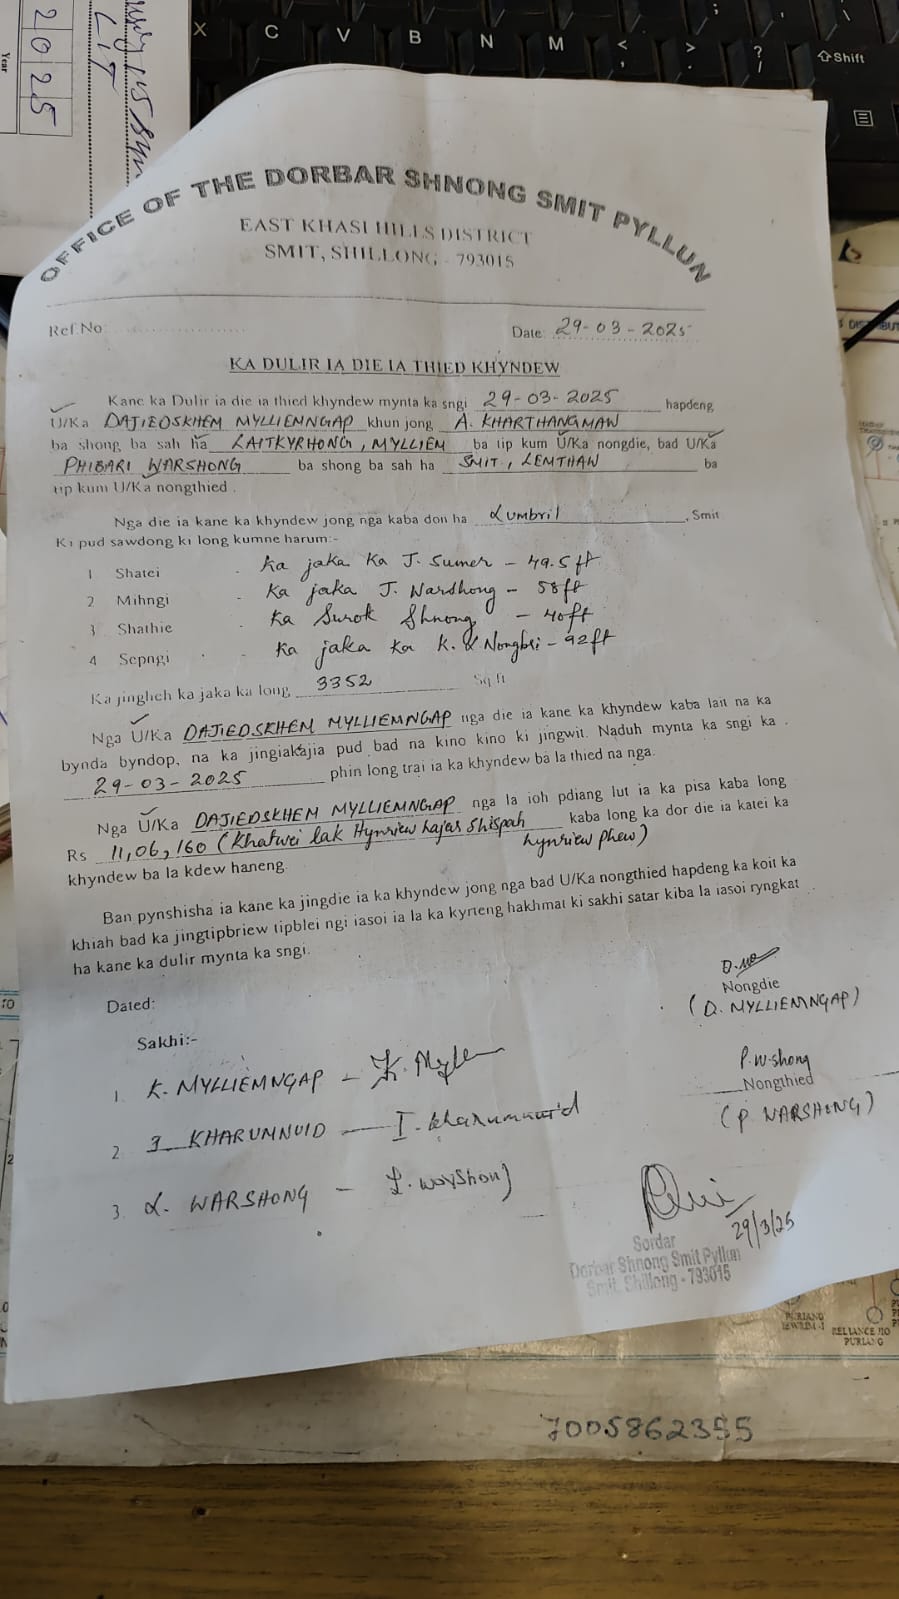 2025
Year
X C V B N M < > ? / Shift
OFFICE OF THE DORBAR SHNONG SMIT PYLLUN
EAST KHASI HILLS DISTRICT
SMIT, SHILLONG - 793015
Ref.No:
Date: 29-03-2025
KA DULIR IA DIE IA THIED KHYNDEW
Kane ka Dulir ia die ia thied khyndew mynta ka sngi 29-03-2025 hapdeng
U/Ka DAJIEDSKHEM MYLLIEMNGAP khun jong A. KHARTHANGMAW
ba shong ba sah ha LAITKYRHONG, MYLLIEM ba tip kum U/Ka nongdie, bad U/Ka
PHIBARI WARSHONG ba shong ba sah ha SMIT, LEMTHAW ba
tip kum U/Ka nongthied.
Nga die ia kane ka khyndew jong nga kaba don ha Lumbril, Smit
Ki pud sawdong ki long kumne harum:-
1 Shatei - Ka jaka Ka J. Sumer - 49.5 ft
2 Mihngi - Ka jaka J. Warshong - 58ft
3 Shathie - Ka Surok Shnong - 40ft
4 Sepngi - Ka jaka Ka K. Nongbri - 92ft
Ka jingheh ka jaka ka long 3352 Sq ft
Nga U/Ka DAJIEDSKHEM MYLLIEMNGAP nga die ia kane ka khyndew kaba lait na ka
bynda byndop, na ka jingiakajia pud bad na kino kino ki jingwit. Naduh mynta ka sngi ka
29-03-2025 phin long trai ia ka khyndew ba la thied na nga.
Nga U/Ka DAJIEDSKHEM MYLLIEMNGAP nga la ioh pdiang lut ia ka pisa kaba long
Rs 11,06,160 (Khatwei lak Hynriew hajar Shispah hynriew phew) kaba long ka dor die ia katei ka
khyndew ba la kdew haneng.
Ban pynshisha ia kane ka jingdie ia ka khyndew jong nga bad U/Ka nongthied hapdeng ka koit ka
khiah bad ka jingtipbriew tipblei ngi iasoi ia la ka kyrteng hakhmat ki sakhi satar kiba la iasoi ryngkat
ha kane ka dulir mynta ka sngi.
Dated:
Nongdie
(D. MYLLIEMNGAP)
Sakhi:-
P.W.shong
Nongthied
(P WARSHONG)
1. K. MYLLIEMNGAP -
2. I KHARUMNUID - I. kharumnuid
3. L. WARSHONG - L. warshong
29/3/25
Sordar
Dorbar Shnong Smit Pyllun
Smit, Shillong - 793015
RELIANCE JIO
PURIANG
7005862355